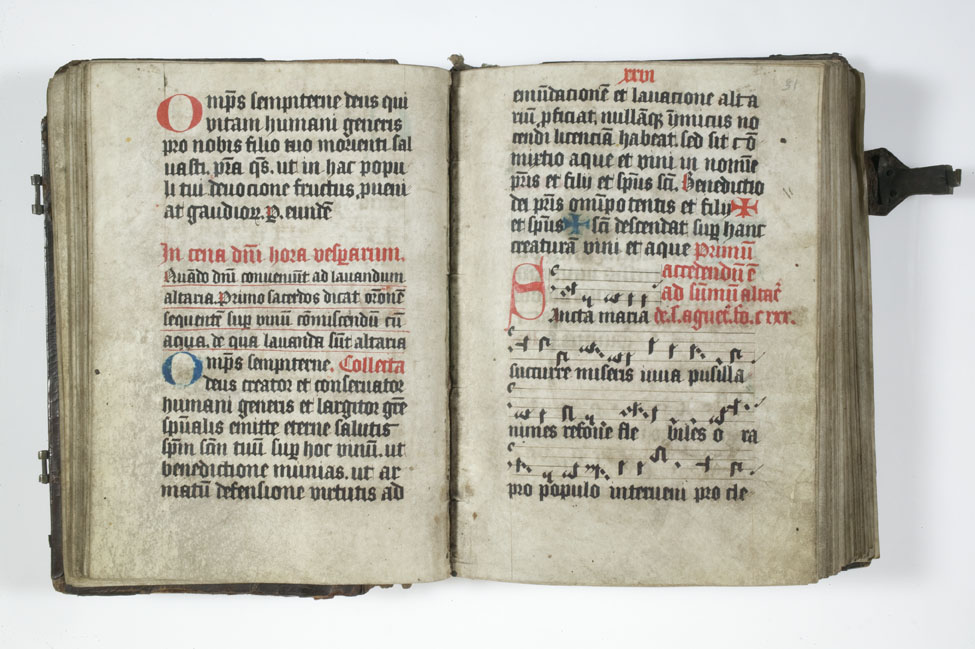 Omp̄s sempiterne deus qui
vitam humani generis
pro nobis filio tuo morienti sal
uasti. pr̄a qs̄. ut in hac popu
li tui deuocione fructus ꝓueni
at gaudioꝝ. P. eundē
In cena dn̄i hora vesperarum.
Quādo dn̄i conueniūt ad lauandum
altaria. Primo sacerdos dicat orōnē
sequentē sup̱ vinū cōmiscendū cū
aqua. de qua lauanda sūt altaria
Omp̄s sempiterne. Collecta
deus creator et conseruator
humani generis et largitor gr̄e
sp̄ualis emitte eterne salutis
sp̄m scm̄ tuū sup̱ hoc vinū. ut
benedictione munias. ut ar
matū defensione virtutis ad
xxvi
31
emūdacionē et lauacione alta
riū ꝓficiat, nullāqꝫ inimicus no
cendi licenciā habeat. sed sit cō
mixtio aque et vini in nomīe
pr̄is et filij et sp̄us sci̅. Benedictio
dei pr̄is om̄ipotentis et filij ✠
et sp̄us ✠ sci̅ descendat sup̱ hanc
creaturā vini et aque Primū
accedendū ē
ad sūmū altar̄
Sancta maria de. s. aguet̄. fo. c xxx.
succurre miseris iuua pusilla
nimes refoue fle biles o ra
pro populo interueni pro cle